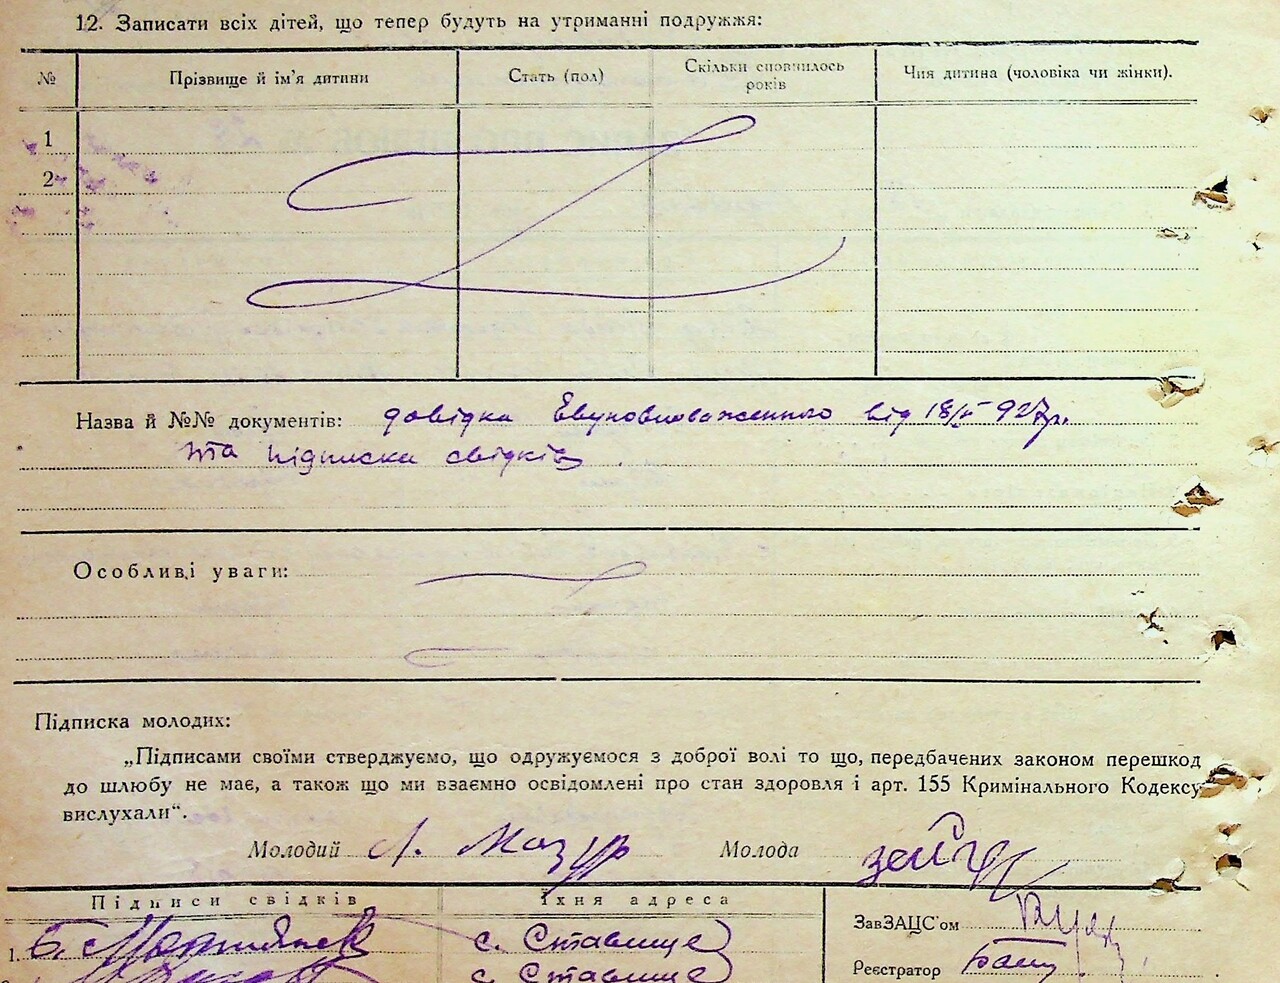 12. Записати всіх дітей, що тепер будуть на утриманні подружжя:
№ Прізвище й ім'я дитини Стать (пол) Скільки сповнилось років Чия дитина (чоловіка чи жінки).
1
2
Назва й №№ документів: довідка від 18/ 927р.
та підписка свідків
Особливі уваги:
Підписка молодих:
„Підписами своїми стверджуємо, що одружуємося з доброї волі то що, передбачених законом перешкод
до шлюбу не має, а також що ми взаємно освідомлені про стан здоровля і арт. 155 Кримінального Кодексу
вислухали“.
Молодий Мазур Молода
Підписи свідків Їхня адреса
ЗавЗАЦС'ом
1. с. Ставище
с. Ставище
Реєстратор